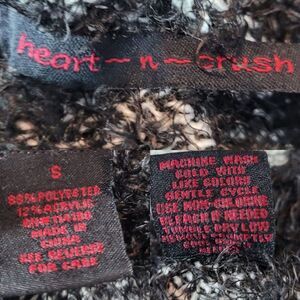 heart-n-crush
S
88% POLYESTER
12% ACRYLIC
MADE IN
CHINA
SEE REVERSE
FOR CARE
MACHINE WASH
COLD WITH
LIKE COLORS
GENTLE CYCLE
USE NON-CHLORINE
BLEACH IF NEEDED
TUMBLE DRY LOW
REMOVE PROMPTLY
COOL IRON